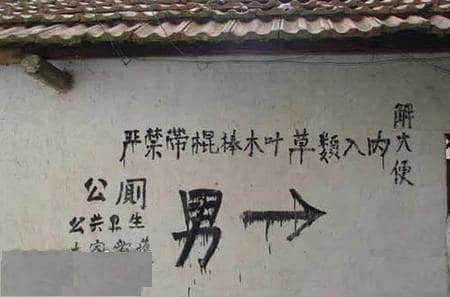 解大便
严禁带棍棒木叶草類入内
公厕
男→
公共卫生